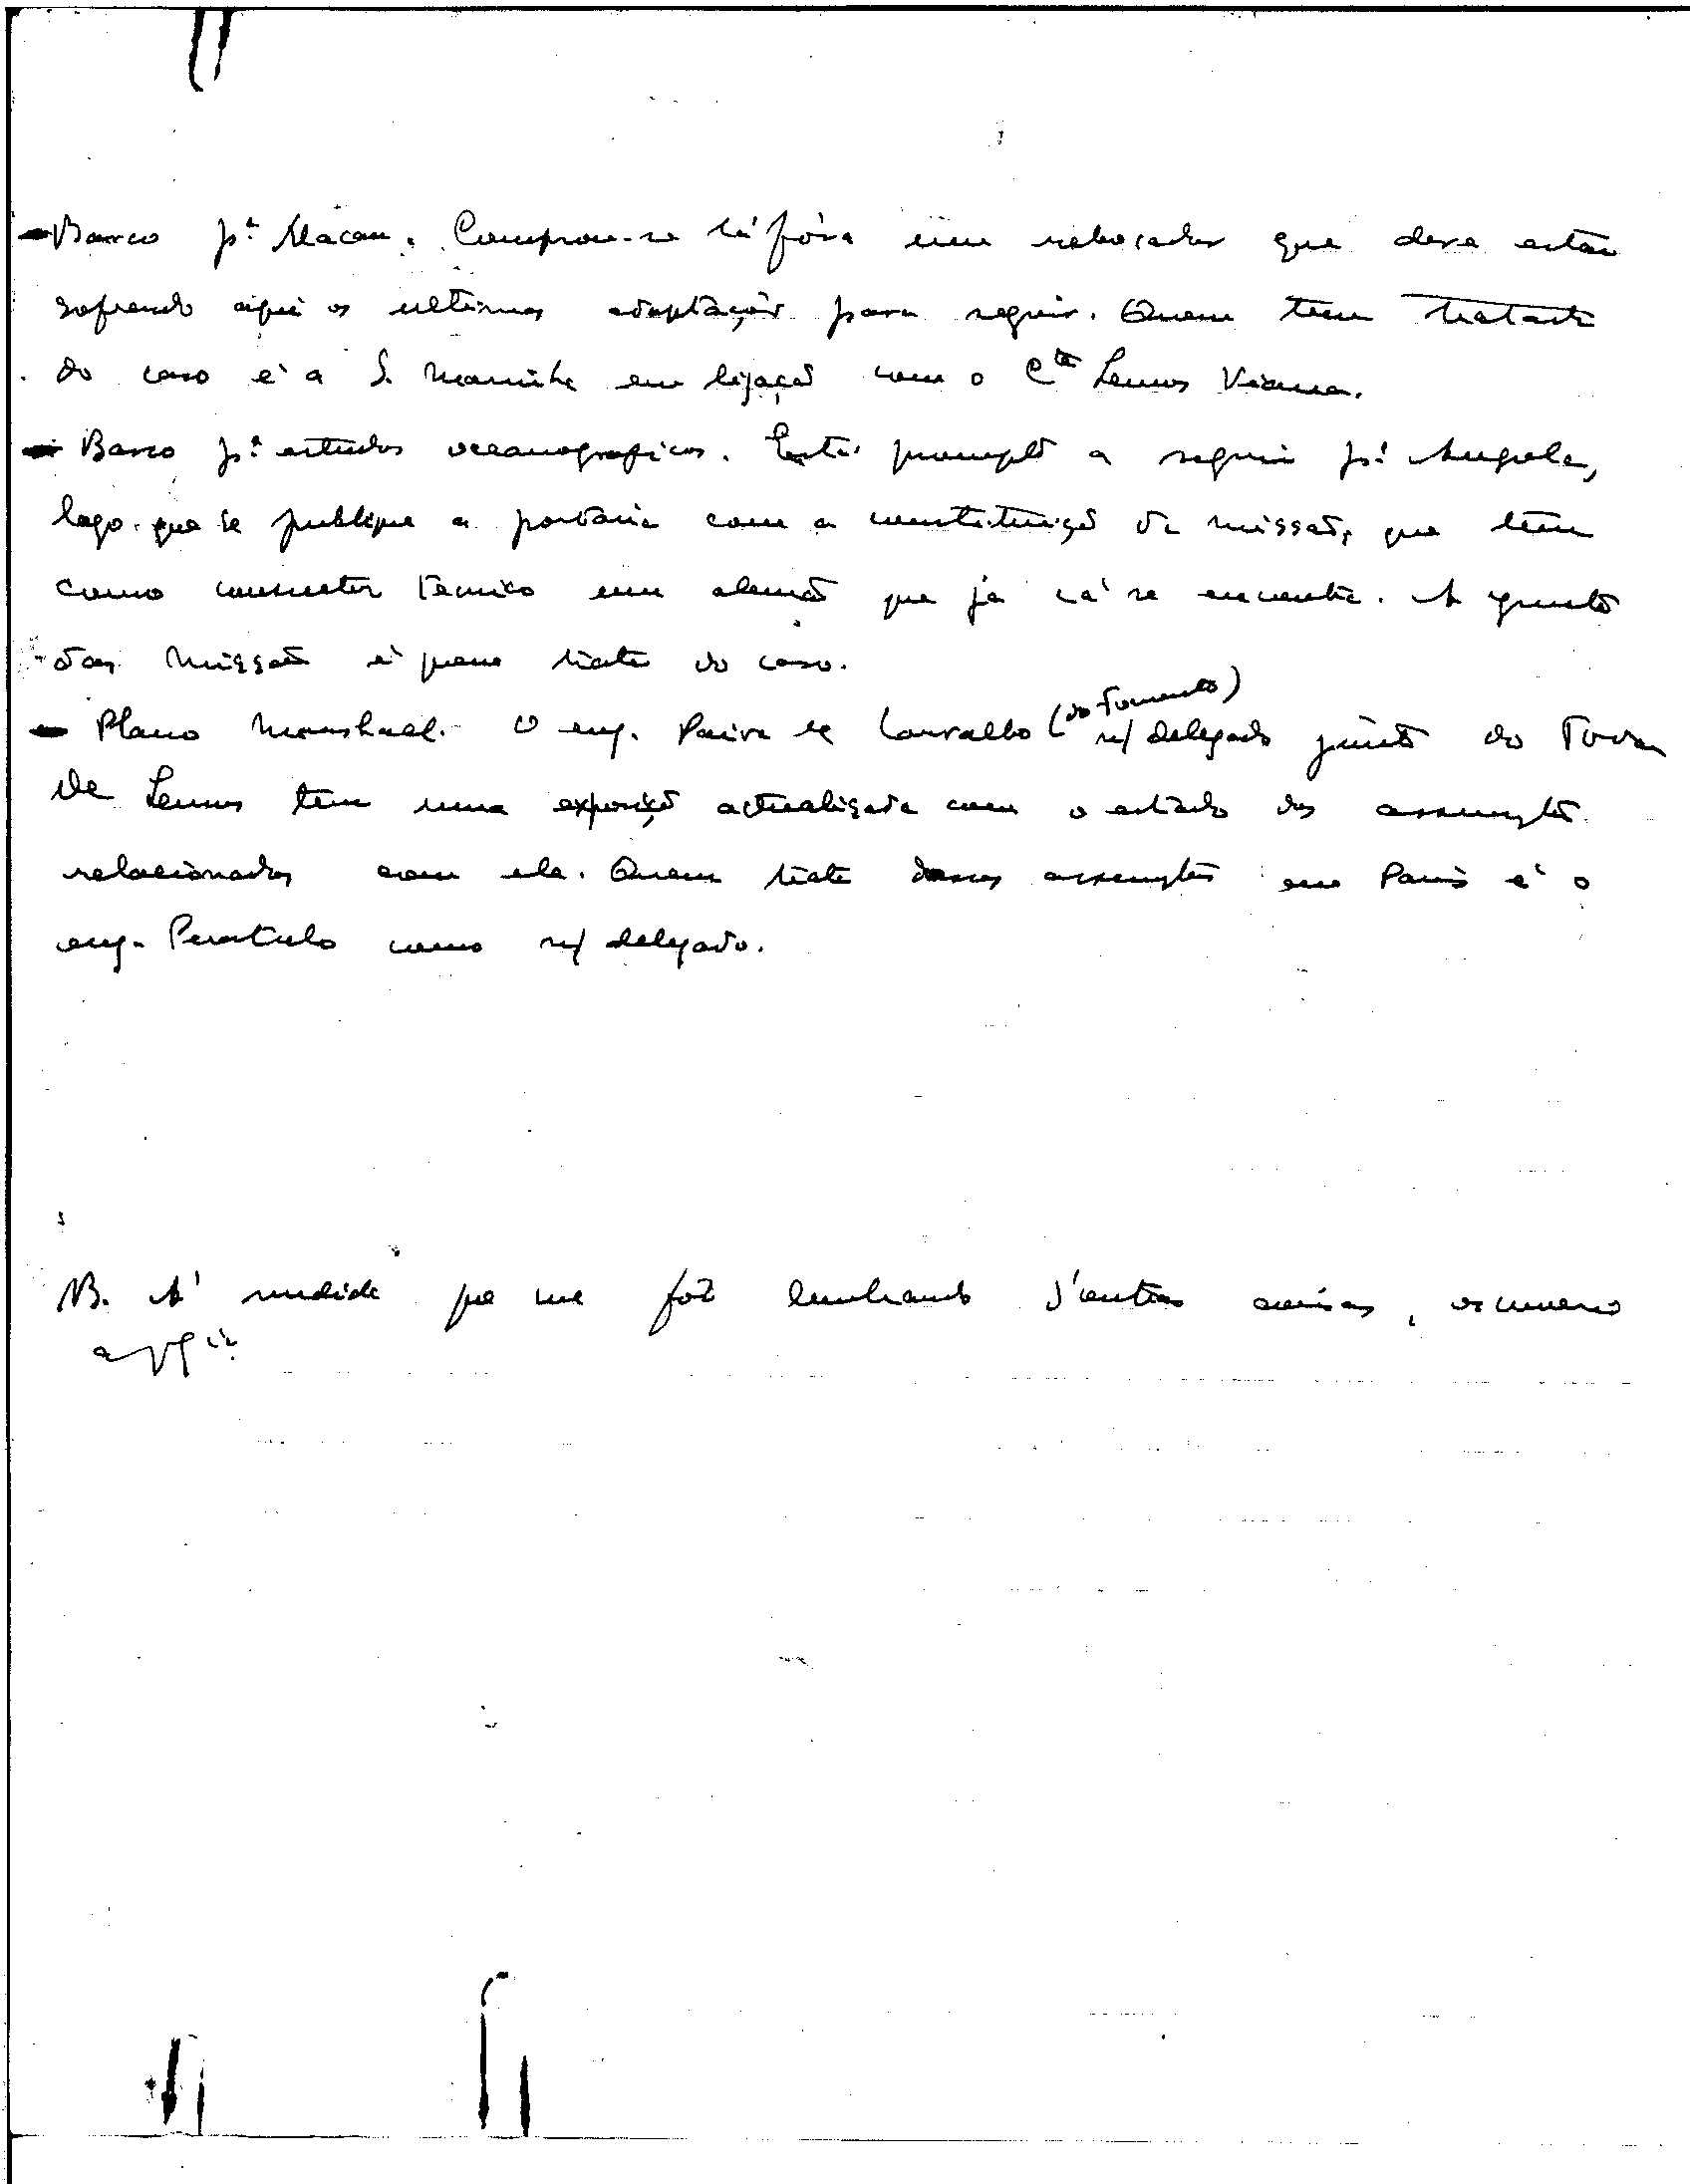 - Barco p.ª Macau. Comprou-se lá fóra um rebocador que deve estar
sofrendo aqui as ultimas adaptações para seguir. Quem tem tratado
do caso é a S. Marinha em ligação com o C.te Lemos Viana.
- Barco p.ª estudos oceanograficos. Está prompto a seguir p.ª Angola,
logo que se publique a portaria com a constituição da missão, que tem
como consultor tecnico um alemão que já cá se encontra. A Junta
das Missões é quem trata do caso.
- Plano Marshall. O eng. Paiva de Carvalho (do Fomento) n/ delegado junto do Tovar
de Lemos tem uma exposição actualizada com o estado dos assumptos
relacionados com ele. Quem trata desses assumptos em Paris é o
eng. como n/ delegado.
NB. Á medida que me fôr lembrando d'outras coisas,